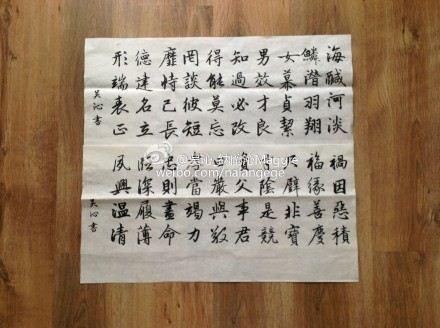 海醎河淡
鱗潛羽翔
女慕貞絜
男效才良
知過必改
得能莫忘
罔談彼短
靡恃己長
德建名立
形端表正
吴沁書
禍因惡積
福緣善慶
尺璧非寶
寸陰是競
資父事君
曰嚴與敬
孝當竭力
忠則盡命
临深履薄
夙興温清
吴沁書
weibo.com/nalangege